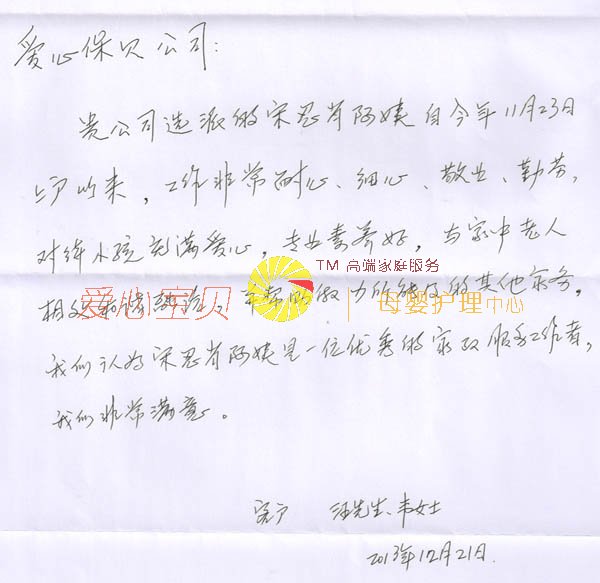 爱心保贝公司:
贵公司选派的宋忍芹阿姨自今年11月23日
上户以来，工作非常耐心、细心、敬业、勤劳，
对待小孩充满爱心，专业素养好，与家中老人
TM 高端家庭服务
爱心宝贝 母婴护理中心
相处 ，并帮助做力所能及的其他家务。
我们认为宋忍芹阿姨是一位优秀的家政服务工作者，
我们非常满意。
客户 汪先生、韦女士
2013年12月21日.